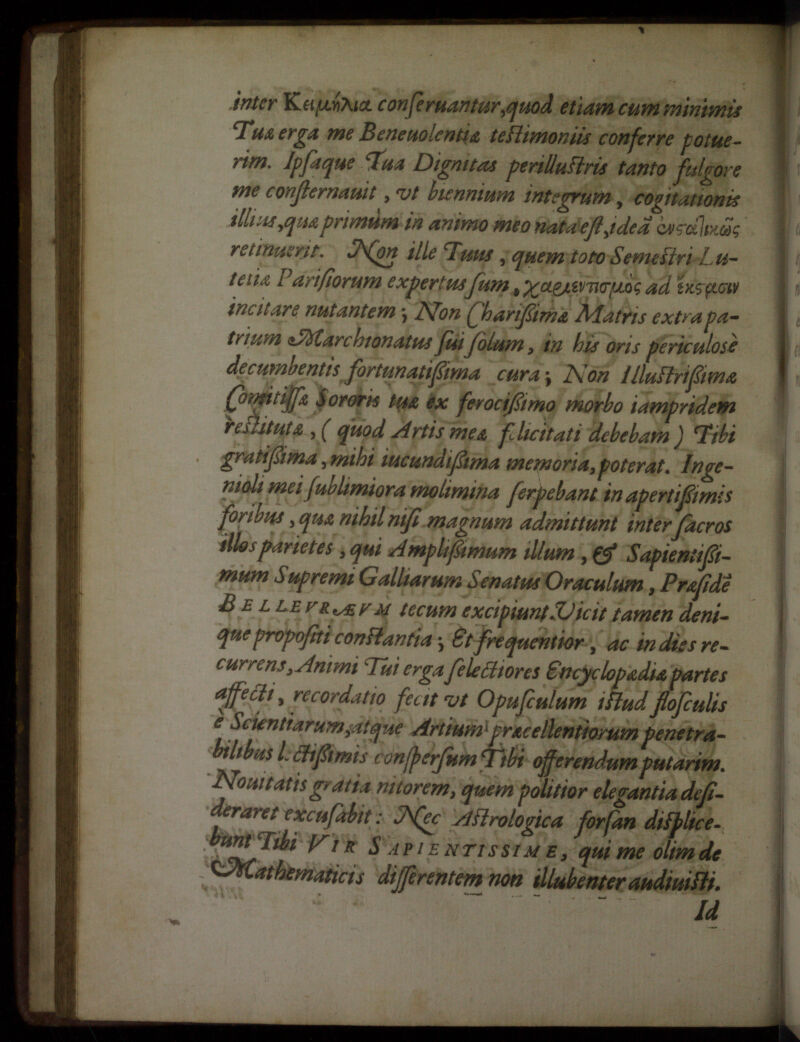 inter Κειμήλια conſeruantur, quod etiam cum minimis
Tuæ erga me Beneuolentiæ teſtimoniis conferre potue-
rim. Ipſaque Tua Dignitas perilluſtris tanto fulgore
me conſternauit, vt biennium integrum, cogitationis
illius, quæ primùm in animo meo nata eſt, idea
retinuerit. Non ille Tuus, quem toto Semeſtri Lu-
tetiæ Pariſiorum expertus ſum, ad ἔκστασιν
incitare nutantem; Non Chariſsimæ Matris extra pa-
trium Marchionatus fui ſolum, in his oris periculosè
decumbentis fortunatiſsima cura; Non Illuſtriſsimæ
Comitiſſæ Sororis tuæ ex ferociſsimo morbo iampridem
reſtitutæ, ( quod Artis meæ fœlicitati debebam ) Tibi
gratiſsima, mihi iucundiſsima memoria, poterat. Inge-
nioli mei ſublimiora molimina ſerpebant in apertiſsimis
foribus, quæ nihil niſi magnum admittunt inter ſacros
illos parietes, qui Ampliſsimum illum, & Sapientiſsi-
mum Supremi Galliarum Senatus Oraculum, Præſidē
BELLEVRÆVM tecum excipiunt. Vicit tamen deni-
que propoſiti conſtantia; Et frequentior, ac in dies re-
currens, Animi Tui erga ſelectiores Encyclopædiæ partes
affecti, recordatio fecit vt Opuſculum iſtud floſculis
è Scientiarum, atque Artium præcellentiorum penetra-
bilibus lectiſsimis conſperſum Tibi offerendum putarim.
Nouitatis gratia nitorem, quem politior elegantia deſi-
deraret excuſabit: Nec Aſtrologica forſan diſplice-
bunt Tibi VIR SAPIENTISSIME, qui me olim de
Mathematicis differentem non illubenter audiuiſti.
Id